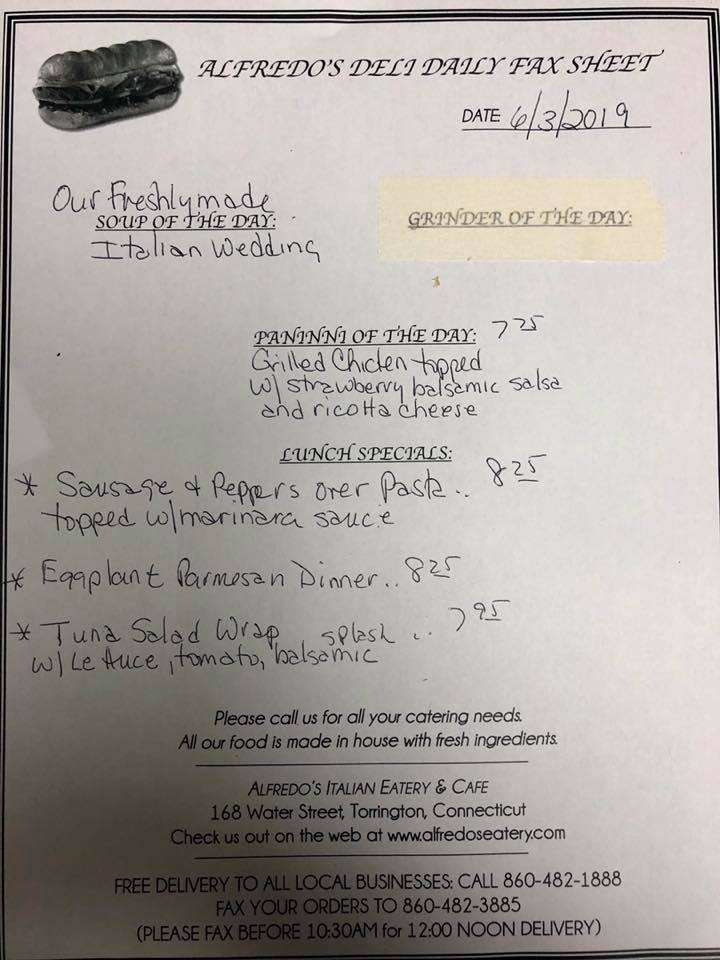 ALFREDO'S DELI DAILY FAX SHEET
DATE 6/3/2019
Our Freshly made
SOUP OF THE DAY:
Italian Wedding
GRINDER OF THE DAY:
PANINNI OF THE DAY: 7 25
Grilled Chicken topped
w/ strawberry balsamic salsa
and ricotta cheese
LUNCH SPECIALS:
* Sausage & Peppers over Pasta.. 8 25
topped w/marinara sauce
* Eggplant Parmesan Dinner.. 8 25
* Tuna Salad Wrap splash .. 7 95
w/ Lettuce, tomato, balsamic
Please call us for all your catering needs.
All our food is made in house with fresh ingredients.
ALFREDO'S ITALIAN EATERY & CAFE
168 Water Street, Torrington, Connecticut
Check us out on the web at www.alfredoseatery.com
FREE DELIVERY TO ALL LOCAL BUSINESSES: CALL 860-482-1888
FAX YOUR ORDERS TO 860-482-3885
(PLEASE FAX BEFORE 10:30AM for 12:00 NOON DELIVERY)